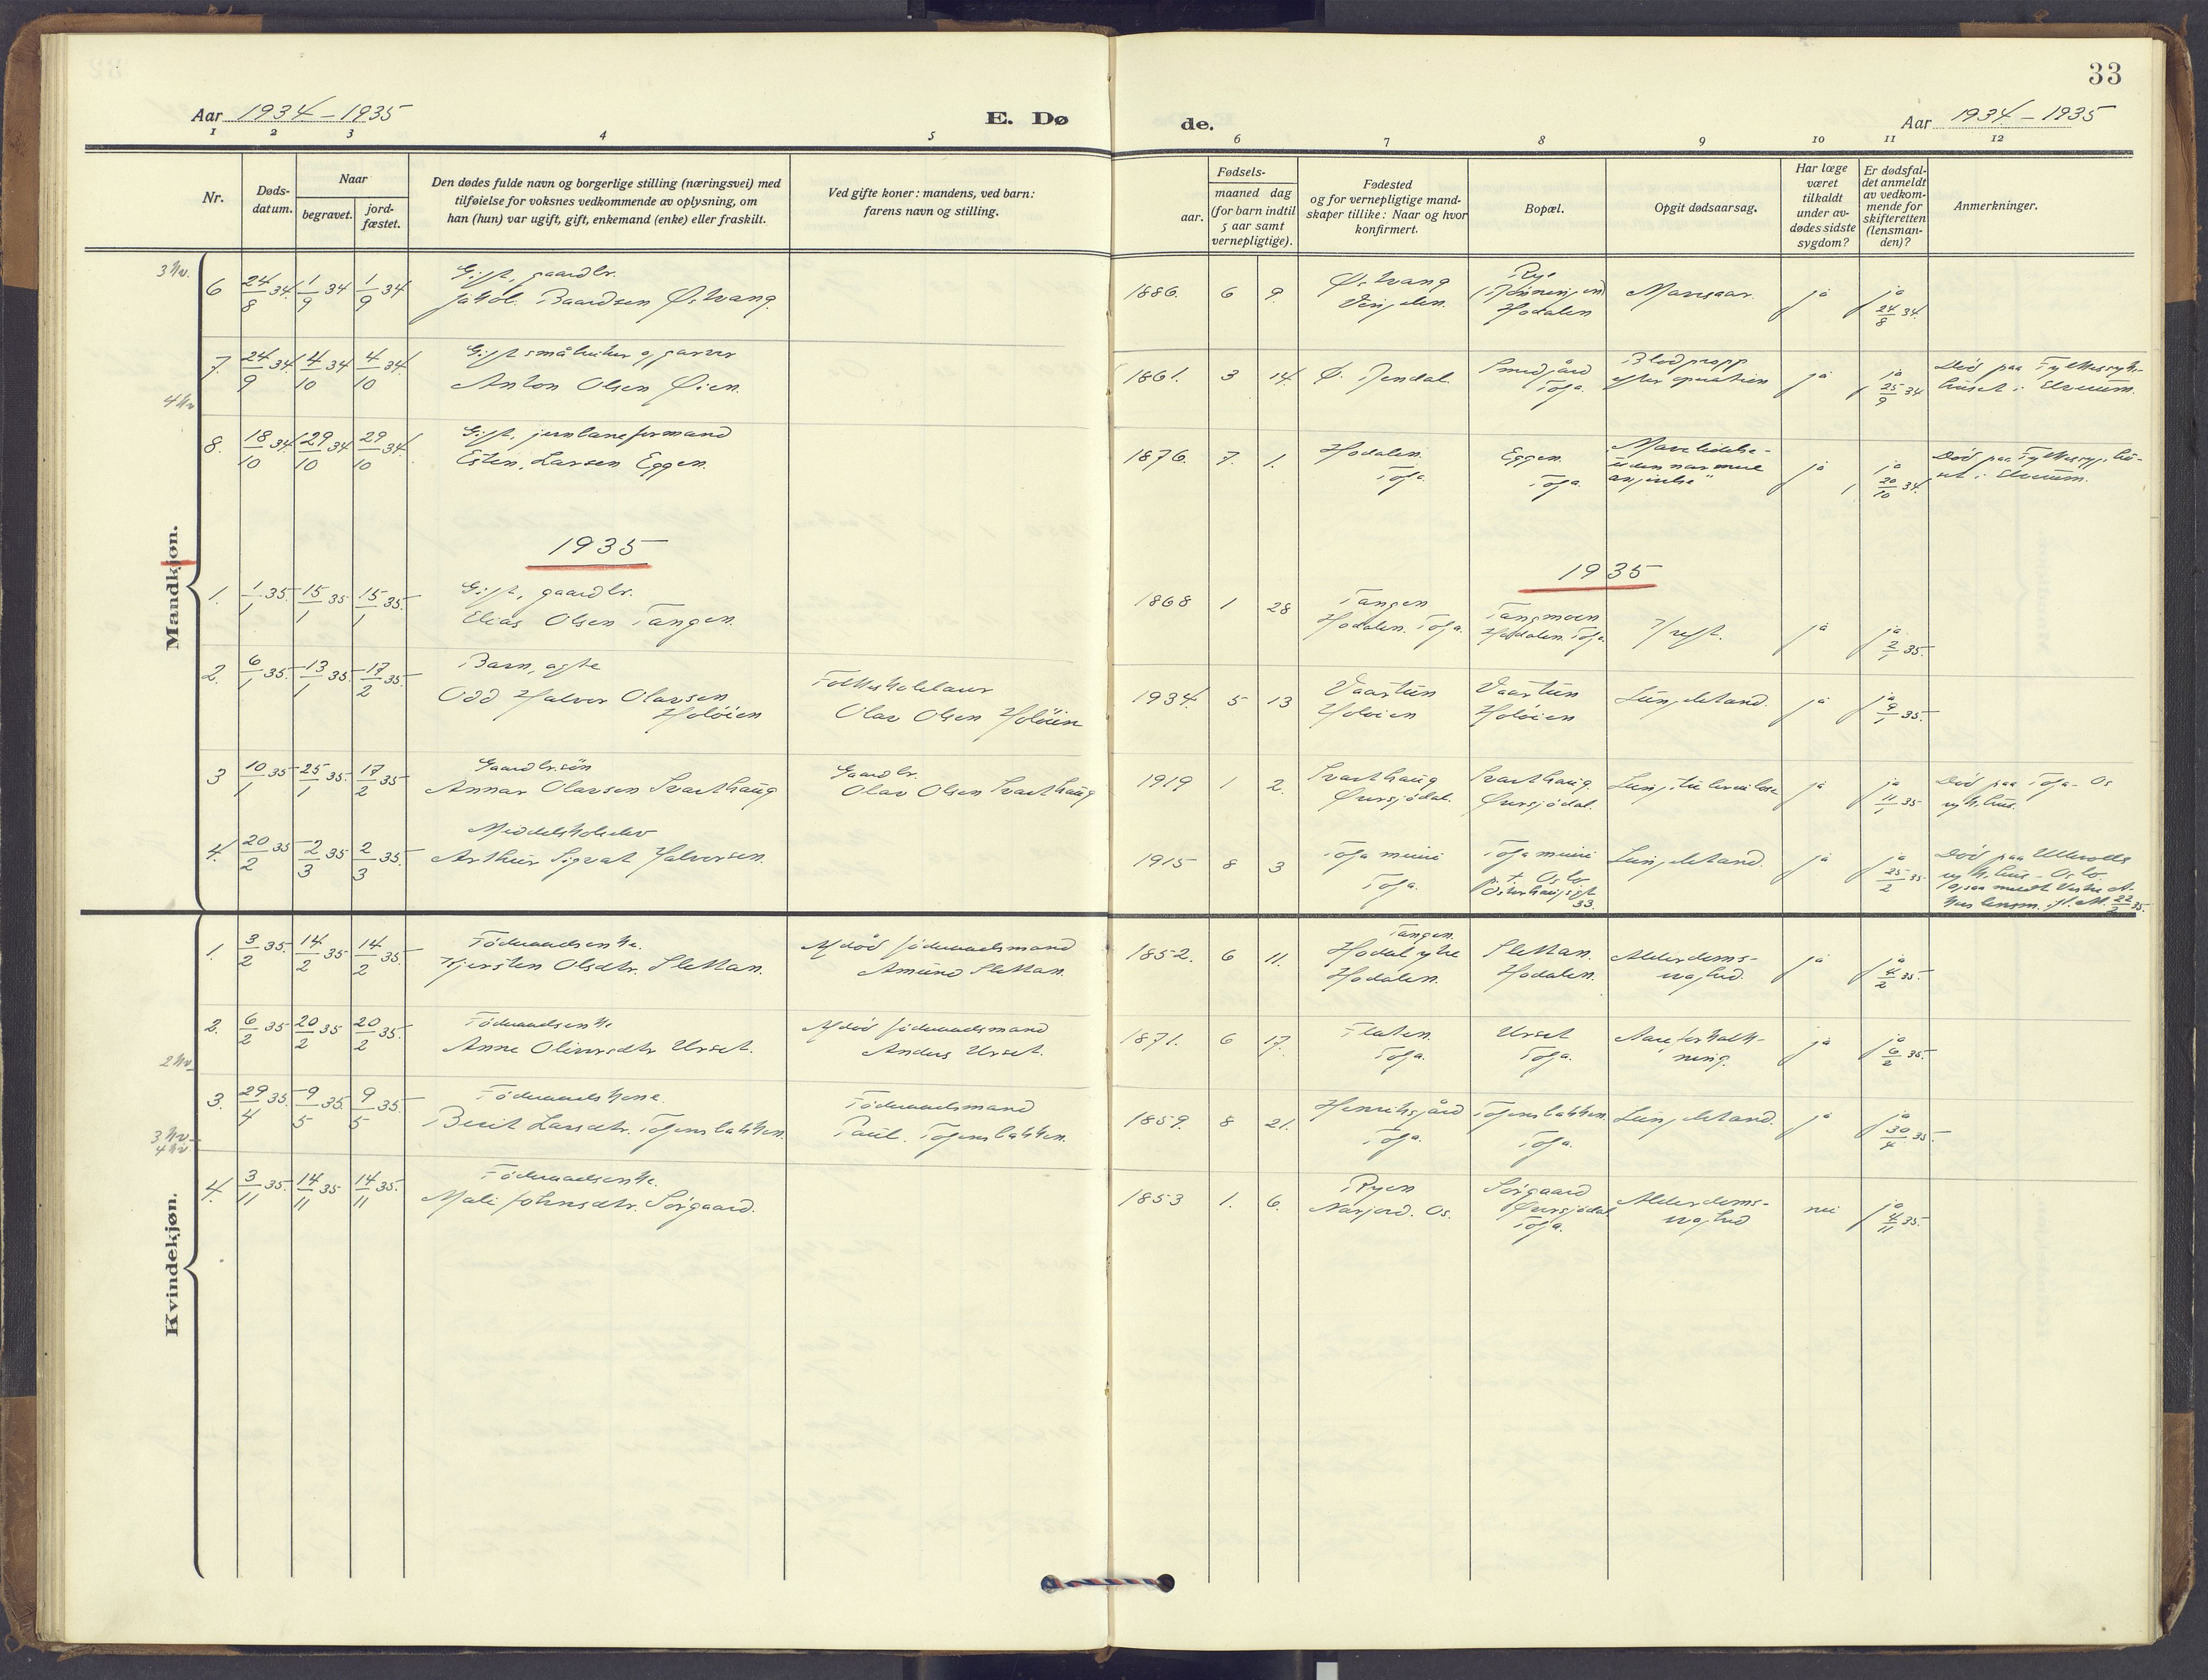 33
Aar 1934 – 1935
E. Dø
de.
Aar 1934 – 1935
1 2 3 4 5 6 7 8 9 10 11 12
Nr.
Døds-
datum.
Naar
begravet.
jord-
fæstet.
Den dødes fulde navn og borgerlige stilling (næringsvei) med
tilføielse for voksnes vedkommende av oplysning, om
han (hun) var ugift, gift, enkemand (enke) eller fraskilt.
Ved gifte koner: mandens, ved barn:
farens navn og stilling.
Fødsels-
aar.
maaned dag
(for barn indtil
5 aar samt
vernepligtige).
Fødested
og for vernepligtige mand-
skaper tillike: Naar og hvor
konfirmert.
Bopæl.
Opgit dødsaarsag.
Har læge
været
tilkaldt
under av-
dødes sidste
sygdom?
Er dødsfal-
det anmeldt
av vedkom-
mende for
skifteretten
(lensman-
den)?
Anmerkninger.
Mandkjøn.
3 kv.
6 24/8 34. 1/9 34 1/9 34
Gift, gaardbr.
Jakob Baardsen Østvang.
1886. 6 9.
Østvang
Vingelen.
Rye
Hodalen
Mavesaar.
ja
ja
24/8 34.
4 kv
7. 24/9 34 4/10 34 4/10 34.
Gift småbruker og garver
Anton Olsen Øien.
1861. 3 14.
Ø. Rendal.
Smedgård
Tolga.
Blodpropp
efter operation
ja
ja
25/9 34
Död paa Fylkessyke-
huset i Elverum.
8. 18/10 34 29/10 34 29/10 34.
Gift, jernbaneformand
Esten Larsen Eggen.
1876. 7. 1.
Hodalen.
Tolga.
Eggen.
Tolga.
Mavelidelse-
"uden nærmere
angivelse"
ja
ja
20/10 34.
Död paa Fylkessygehu-
set i Elverum.
1935
1935
1. 1/1 35. 15/1 35 15/1 35.
Gift, gaardbr.
Elias Olsen Tangen.
1868 1 28
Tangen
Hodalen. Tolga.
Tangmoen
Hodalen. Tolga.
Kreft.
ja
ja
2/1 35.
2. 6/1 35. 13/1 35. 17/2 35.
Barn, ægte
Odd Halvor Olavsen
Holöien
Folkeskolelærer
Olav Olsen Holöien
1934. 5 13
Vaartun
Holöien
Vaartun
Holöien
Lungebetænd.
ja
ja
9/1 35.
3 10/1 35 25/1 35. 17/2 35
Gaardbr.sön
Annar Olavsen Svarthaug
Gaardbr.
Olav Olsen Svarthaug
1919 1 2.
Svarthaug
Øversjödal.
Svarthaug.
Øversjödal.
Lungetuberculose
ja
ja
11/1 35
Död paa Tolga-Os
sykehus.
4. 20/2 35 2/3 35 2/3 35.
Middelskolelev
Arthur Sigvat Halvorsen.
1915 8 3
Tolga meieri
Tolga.
Tolga meieri
p. t. Oslo
Österhaugsgt
33.
Lungebetænd.
ja
ja
25/2 35.
Död paa Ullevolls
sykehus - Oslo.
Kvindekjøn.
1. 3/2 35. 14/2 35 14/2 35.
Föderaadsenke.
Kjersten Olsdtr. Slettan.
Afdöd föderaadsmand
Amund Slettan.
1852. 6 11.
Tangen.
Hodal ytre
Hodalen.
Slettan.
Hodalen.
Alderdoms-
svaghed.
ja
ja
4/2 35.
2. 6/2 35 20/2 35 20/2 35.
Föderaadsenke
Anne Oliversdtr Urset.
Afdöd föderaadsmand
Anders Urset.
1871. 6 17.
Flaten.
Tolga.
Urset
Tolga.
Aareforkalk-
ning.
ja
ja
6/2 35.
2 kv
3. 29/4 35. 9/5 35. 9/5 35.
Föderaadskone.
Berit Larsdtr. Tolgensbakken.
Föderaadsmand
Paul. Tolgensbakken.
1859. 8 21.
Henriksgård
Tolga.
Tolgensbakken.
Tolga.
Lungebetænd.
ja
ja
30/4 35.
3 kv
4 kv
4. 3/11 35. 14/11 35 14/11 35.
Föderaadsenke.
Mali Johnsdtr. Sörgaard.
1853 1. 6.
Ryen
Narjord. Os.
Sörgaard
Øversjödal
Tolga.
Alderdoms-
svaghed
nei
ja
4/11 35.